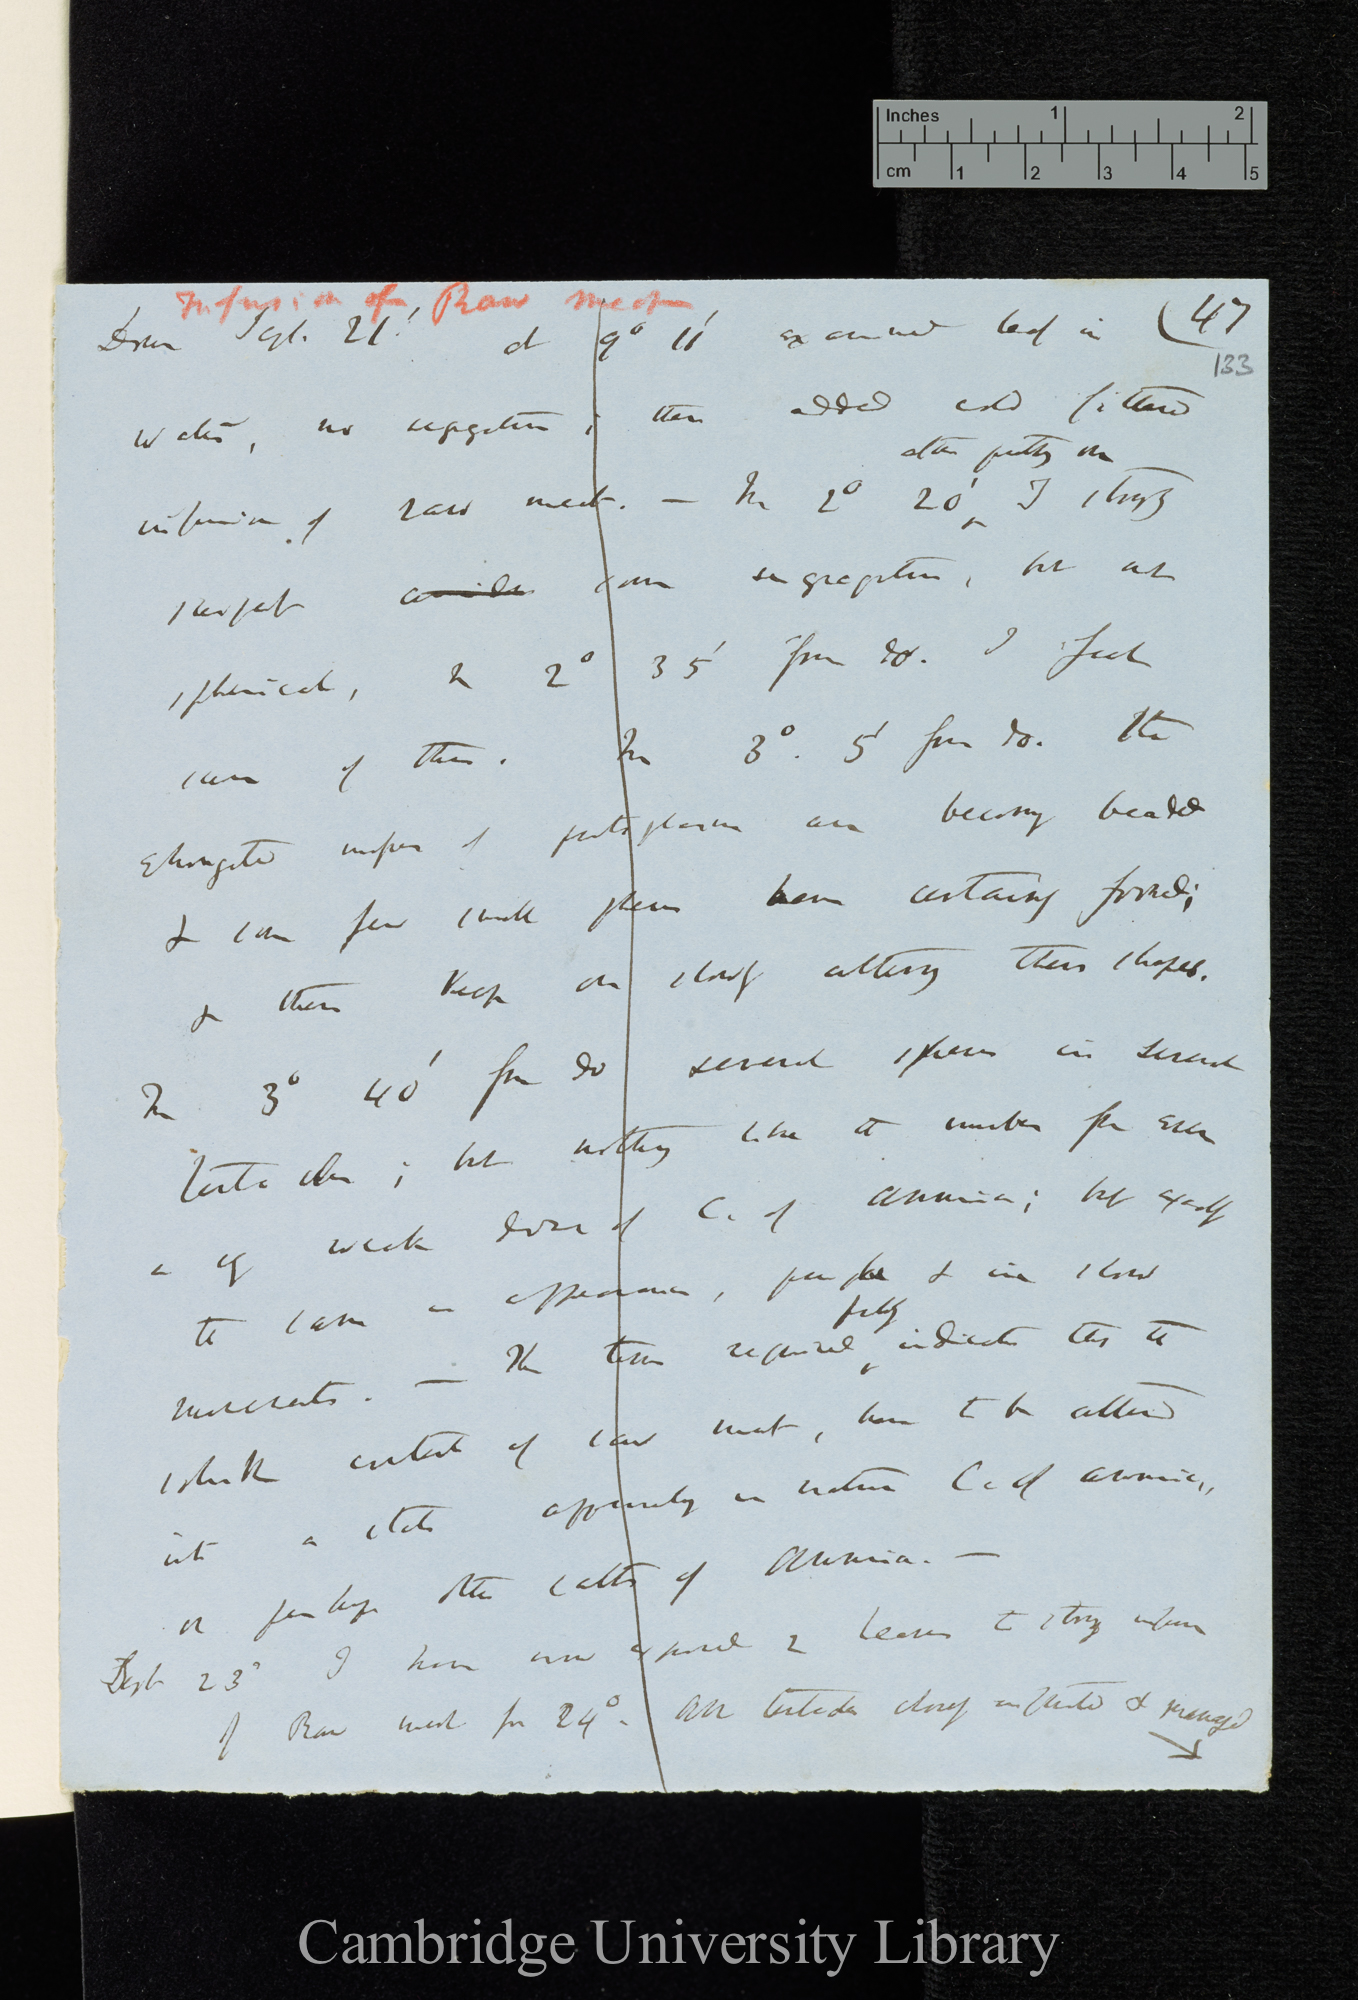 Inches 1 2
cm 1 2 3 4 5
Infusion of Raw meat
(47
133
Down Sept. 21' at 9° 11' examined leaf in
water, no segregation; then added cold filtered
after putty on
infusion of raw meat. — In 2° 20' I strongly
suspect some segregation, but not
spherical, In 2° 35' from do. I feel
sure of this. In 3°. 5' from do. the
elongated masses of protoplasm are becoming beaded
& some few small spheres have certainly formed;
& these keep on slowly altering their shapes.
In 3° 40' from do several spheres in several
tentacles; but nothing like the number for even
a weak dose of C. of Ammonia; but exactly
the same in appearance, purple & in slow
probably
movements. — The time required indicates that the
whole extract of raw meat, have to be altered
into a state apparently in nature C. of ammonia,
or perhaps other salts of Ammonia. —
Sept 23° I have now exposed 2 leaves to strong infusion
of Raw meat for 24°. All tentacles closely inflected &